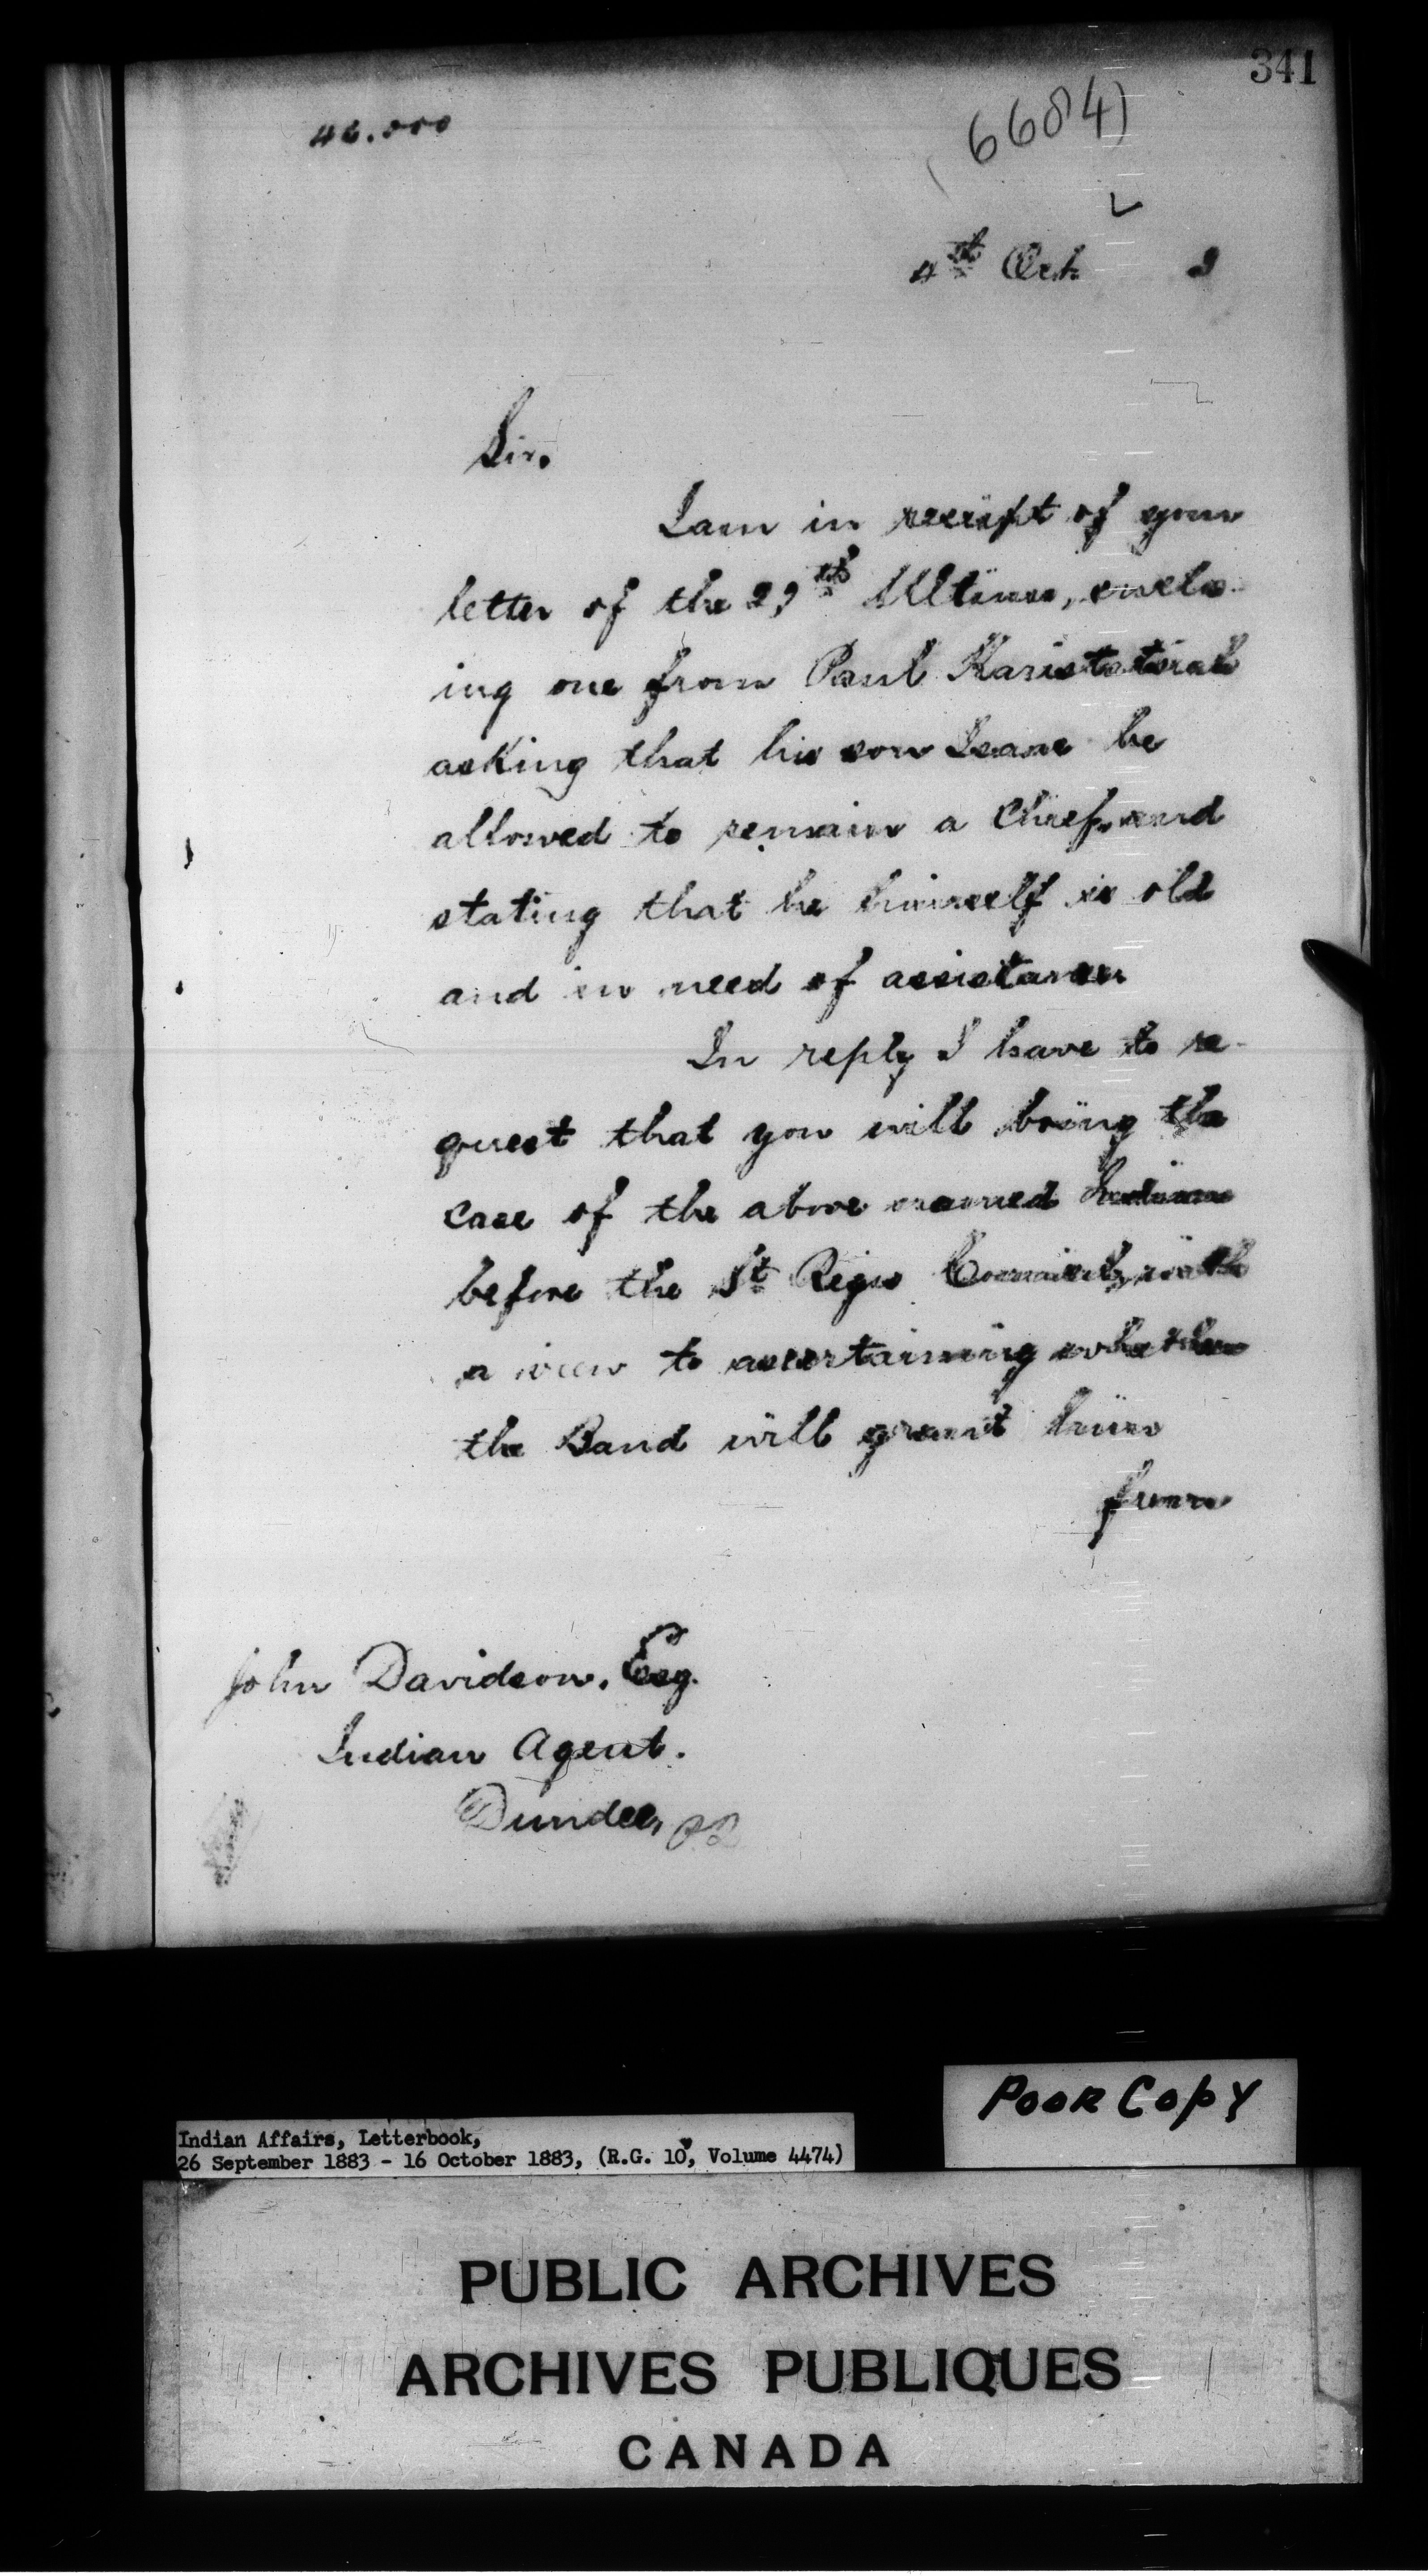 341
46.000
6684)
4th Oct. 3
Sir,
I am in receipt of your
letter of the 29th Ultimo, enclos-
ing one from Paul
asking that his son Isaac be
allowed to remain a Chief, and
stating that he himself is old
and in need of assistance
In reply I have to re-
quest that you will bring the
case of the above named Indian
before the St Regis Council, with
a view to ascertaining whether
the Band will grant him
from
John Davidson, Esq.
Indian Agent.
Dundee, P2
Poor Copy
Indian Affairs, Letterbook,
26 September 1883 - 16 October 1883, (R.G. 10, Volume 4474)
PUBLIC ARCHIVES
ARCHIVES PUBLIQUES
CANADA